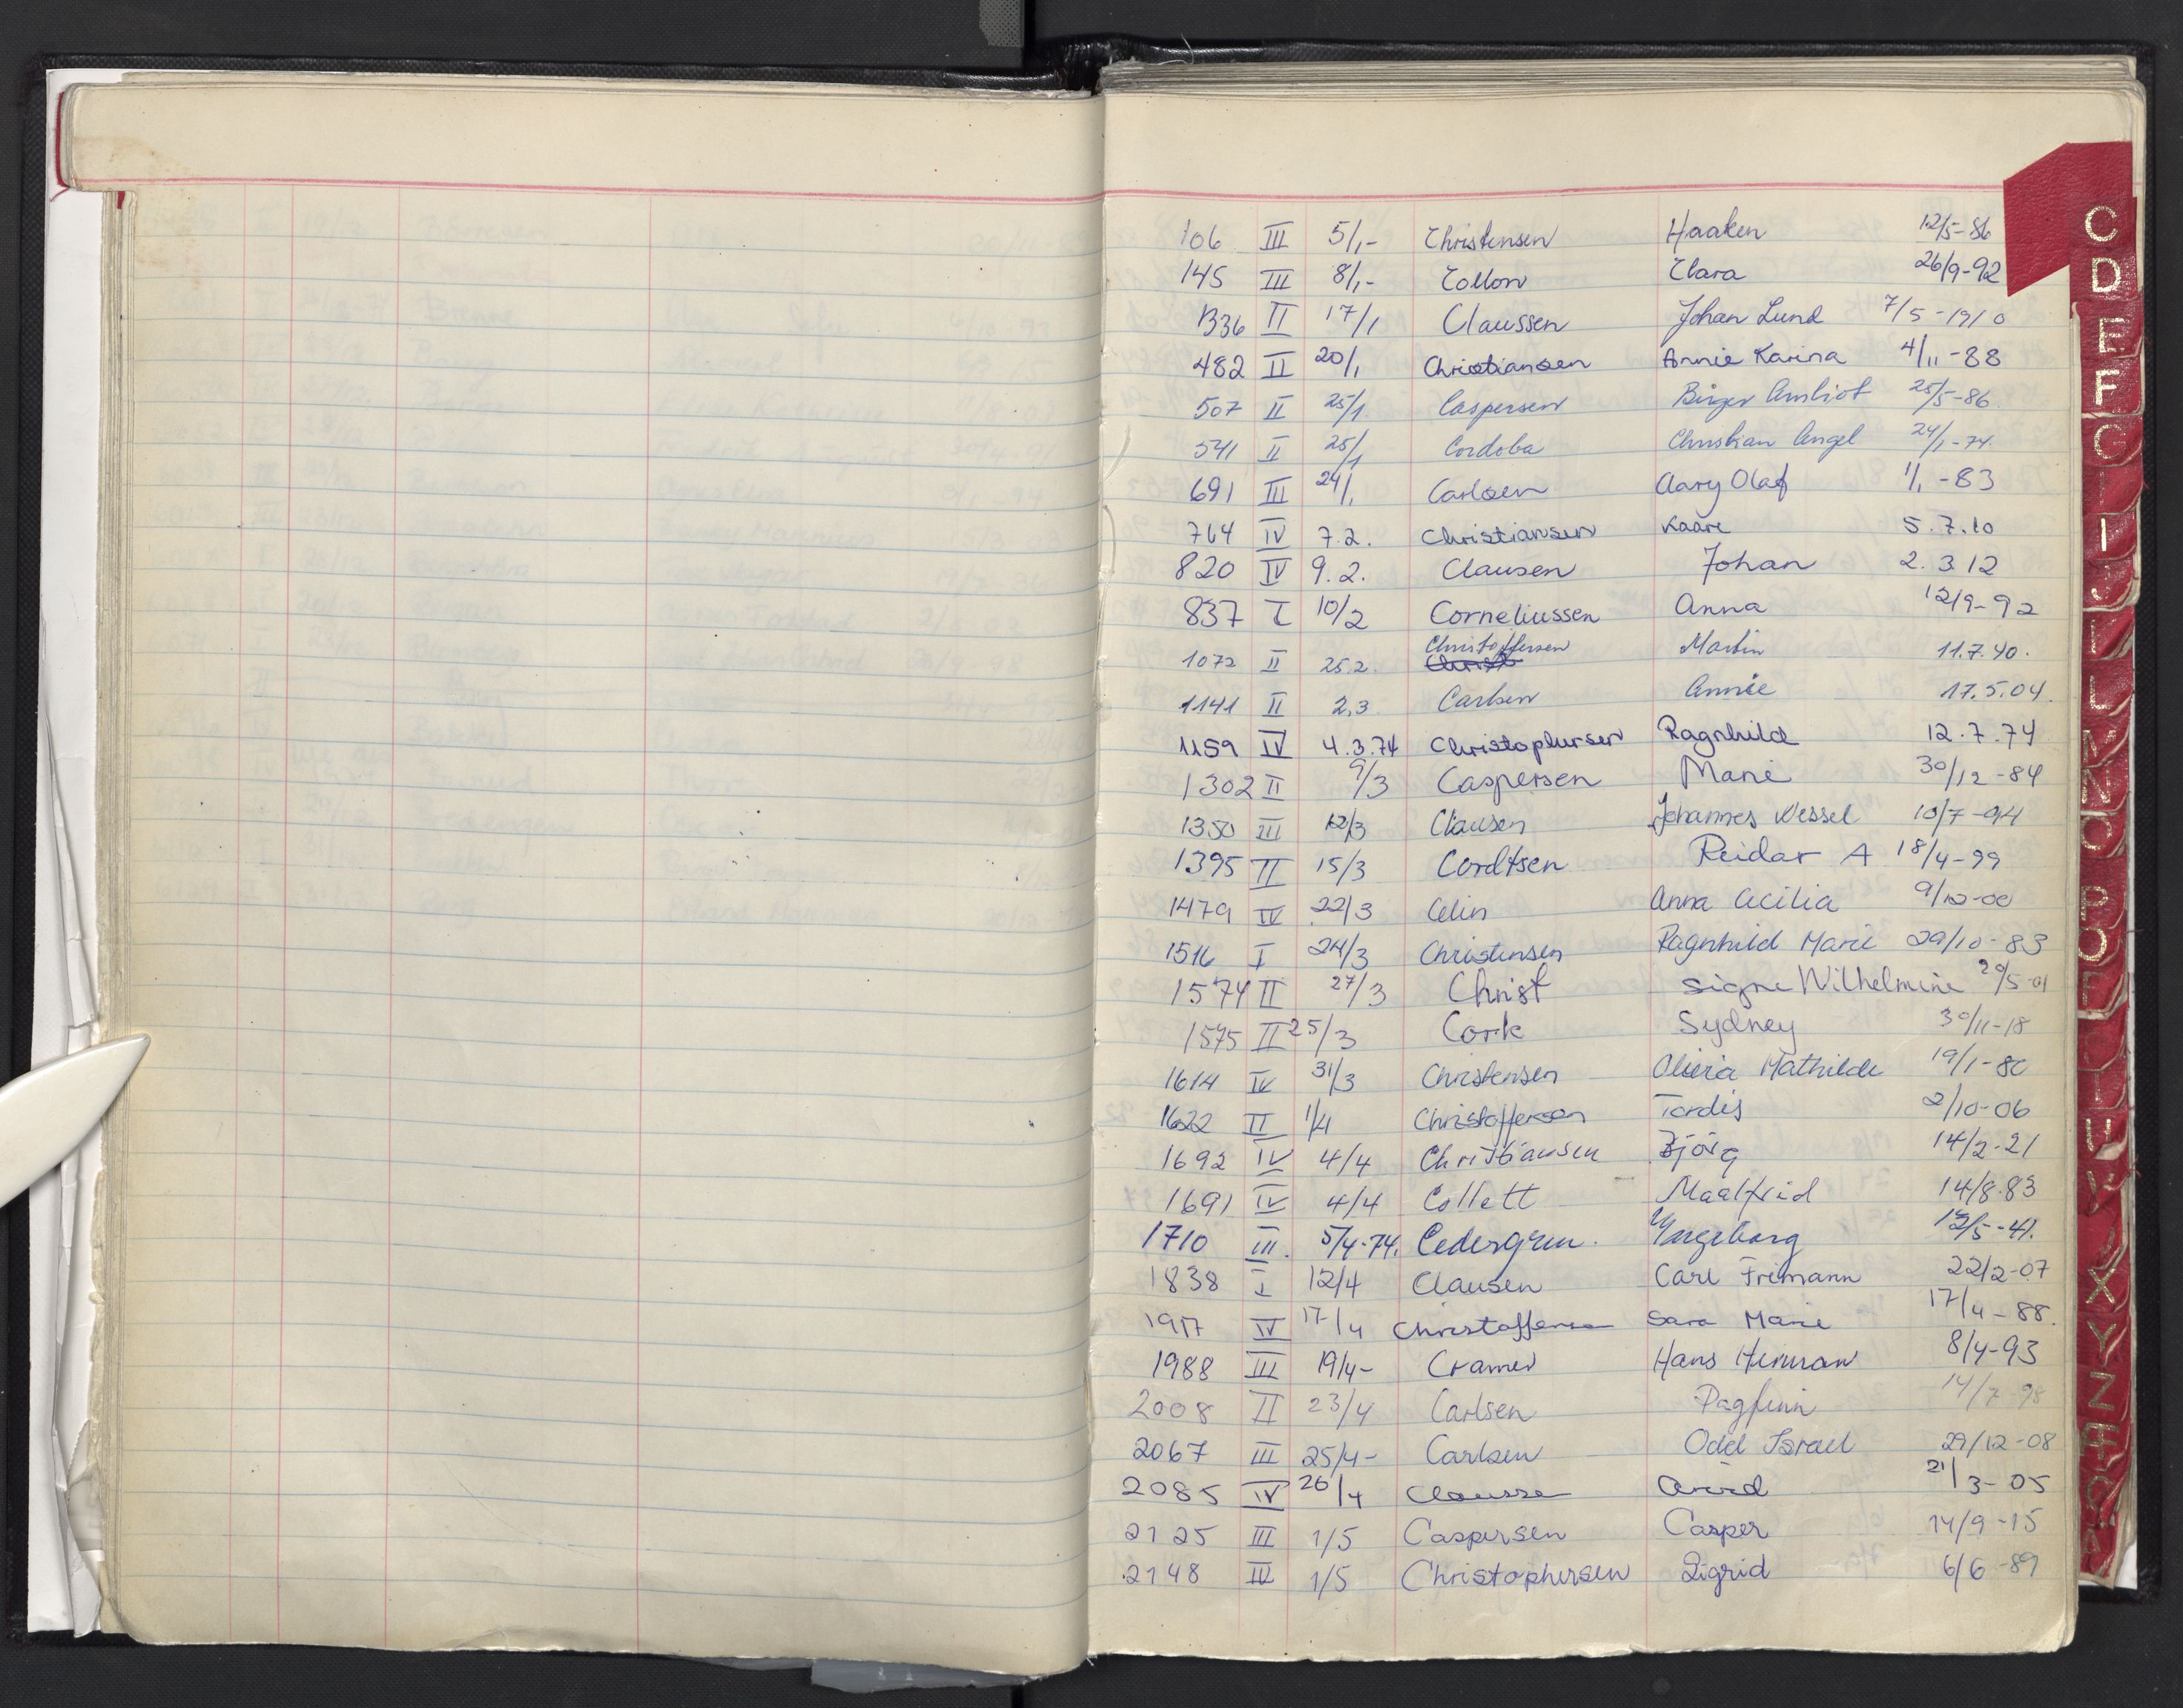 106 III 5/1- Christensen Haaken 12/5-86
145 III 8/1- Collon Clara 26/9-92
336 II 17/1 Claussen Johan Lund 7/5-1910
482 II 20/1 Christiansen Annie Karina 4/11-88
507 II 25/1 Caspersen Birger 25/5-86
541 II 25/1 Cordoba Christian Angel 24/1-74.
691 III 24/1 Carlsen Aary Olaf 1/1-83
764 IV 7.2. Christiansen Kaare 5.7.10
820 IV 9.2. Clausen Johan 2.3.12
837 I 10/2 Corneliussen Anna 12/9-92
1072 II 25.2. Christoffersen Martin 11.7.40.
1141 II 2.3 Carlsen Annie 17.5.04.
1159 IV 4.3.74 Christophersen Ragnhild 12.7.74
1302 II 9/3 Caspersen Marie 30/12-84
1350 III 12/3 Clausen Johannes Wessel 10/7-94
1395 II 15/3 Cordtsen Reidar A 18/4-99
1479 IV 22/3 Celin Anna Cecilia 9/12-00
1516 I 24/3 Christensen Ragnhild Marie 29/10-83
1574 II 27/3 Christ Signe Wilhelmine 29/5-01
1575 II 25/3 Cork Sydney 30/11-18
1614 IV 31/3 Christensen Olivia Mathilde 19/1-80
1622 II 1/4 Christoffersen Tordis 2/10-06
1692 IV 4/4 Christiansen Bjørg 14/2-21
1691 IV 4/4 Collett Maalfrid 14/8.83
1710 III. 5/4-74. Cedergren. Yngeborg 12/5-41.
1838 I 12/4 Clausen Carl Frimann 22/2-07
1917 IV 17/4 Christoffersen Sara Marie 17/4-88.
1988 III 19/4- Cramer Hans Herman 8/4-93
2008 II 23/4 Carlsen Dagfinn 14/7-98
2067 III 25/4- Carlsen Odd Israel 29/12-08
2085 IV 26/4 Claussen Arvid 21/3-05
2125 III 1/5 Caspersen Casper 14/9-15
2148 IV 1/5 Christophersen Sigrid 6/6-89
C
D
E
F
G
I
J
L
N
O
P
X
Y
Z